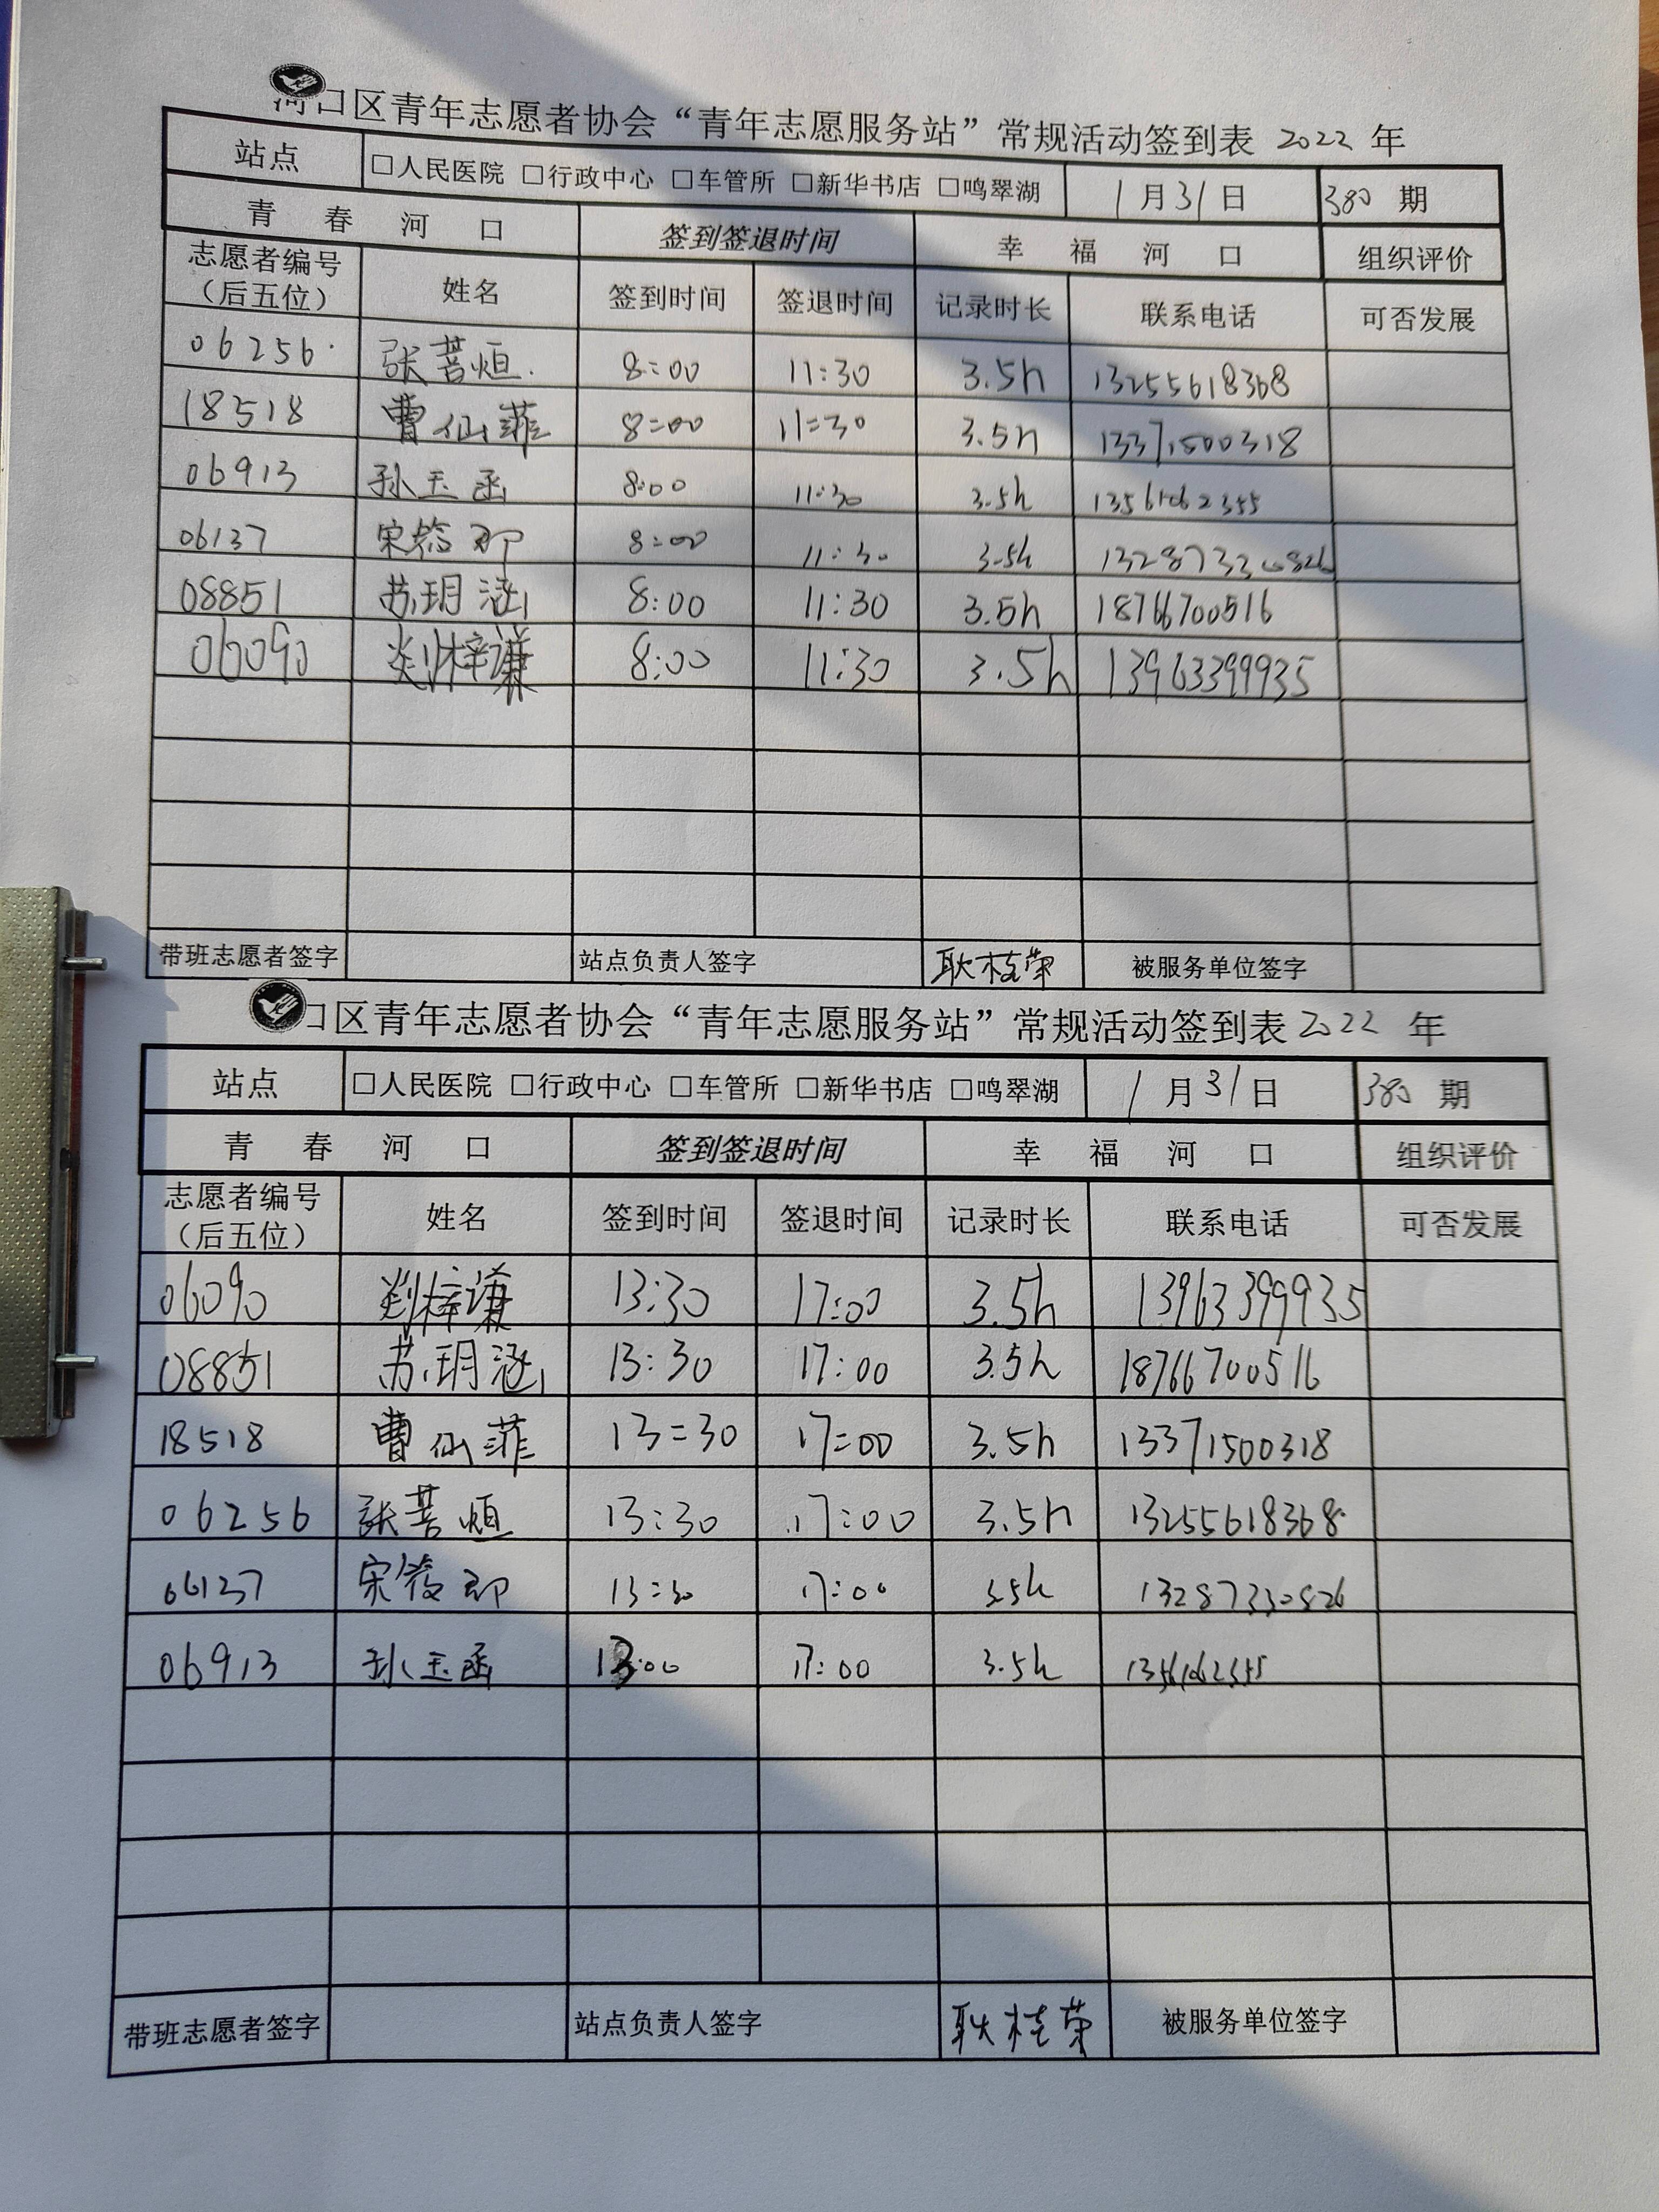 河口区青年志愿者协会“青年志愿服务站”常规活动签到表 2022 年
站点 □人民医院 □行政中心 □车管所 □新华书店 □鸣翠湖 1月31日 380 期
青 春 河 口 签到签退时间 幸 福 河 口 组织评价
志愿者编号（后五位） 姓名 签到时间 签退时间 记录时长 联系电话 可否发展
06256 张菩烜 8:00 11:30 3.5h 13255618368
18518 曹仙菲 8:00 11:30 3.5h 13371500318
06913 孙玉函 8:00 11:30 3.5h
06137 宋 8:00 11:30 3.5h
08851 苏玥涵 8:00 11:30 3.5h 18766700516
06090 刘梓谦 8:00 11:30 3.5h 13963399935
带班志愿者签字 站点负责人签字 耿桂荣 被服务单位签字
口区青年志愿者协会“青年志愿服务站”常规活动签到表 2022 年
站点 □人民医院 □行政中心 □车管所 □新华书店 □鸣翠湖 1月31日 380 期
青 春 河 口 签到签退时间 幸 福 河 口 组织评价
志愿者编号（后五位） 姓名 签到时间 签退时间 记录时长 联系电话 可否发展
06090 刘梓谦 13:30 17:00 3.5h 13963399935
08851 苏玥涵 13:30 17:00 3.5h 18766700516
18518 曹仙菲 13:30 17:00 3.5h 13371500318
06256 张菩烜 13:30 17:00 3.5h 13255618368
06137 宋 13:30 17:00 3.5h 13287330826
06913 孙玉函 13:00 17:00 3.5h
带班志愿者签字 站点负责人签字 耿桂荣 被服务单位签字